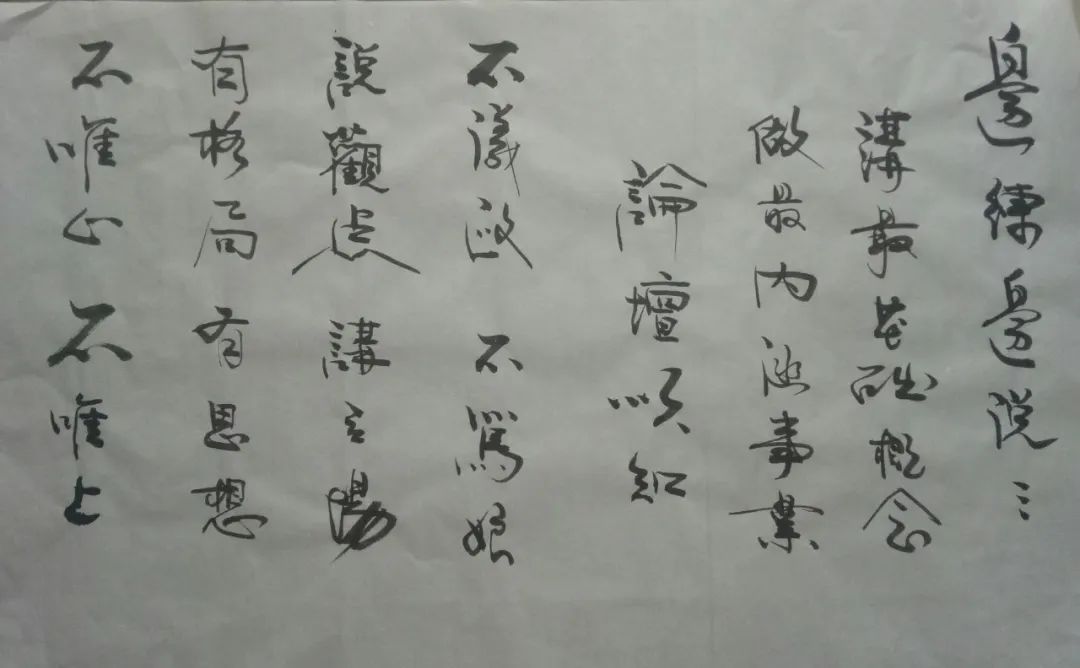 邊練邊説三
講最基礎概念
做最内涵事業
論壇須知
不議政 不罵娘
說觀点 講立場
有格局 有思想
不唯心 不唯上